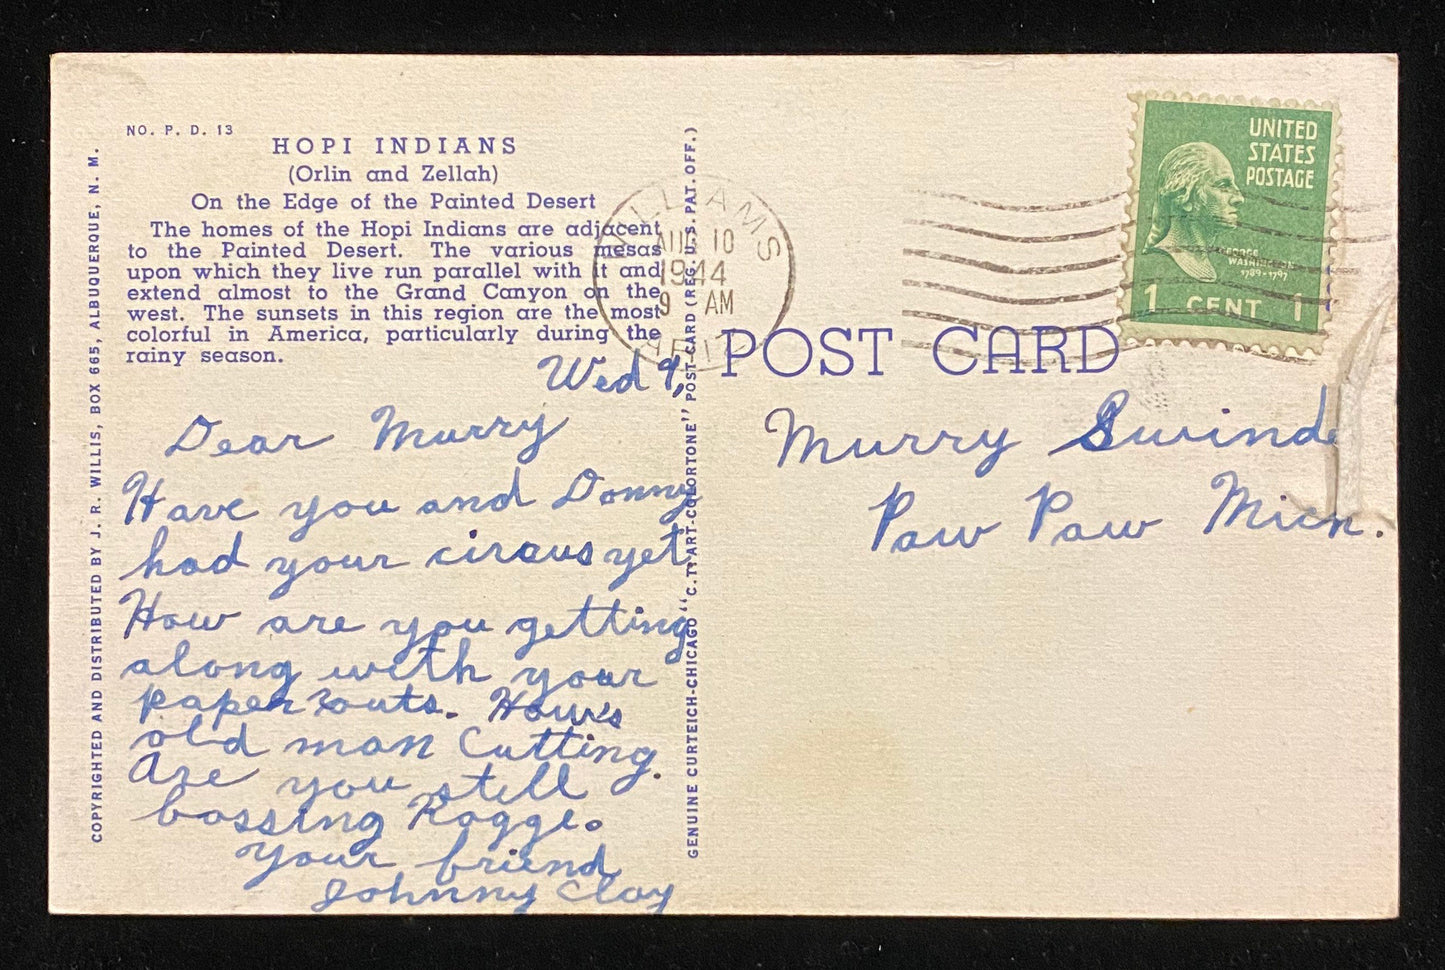 NO. P. D. 13
HOPI INDIANS
(Orlin and Zellah)
On the Edge of the Painted Desert
The homes of the Hopi Indians are adjacent
to the Painted Desert. The various mesas
upon which they live run parallel with it and
extend almost to the Grand Canyon on the
west. The sunsets in this region are the most
colorful in America, particularly during the
rainy season.
COPYRIGHTED AND DISTRIBUTED BY J. R. WILLIS, BOX 665, ALBUQUERQUE, N. M.
Wed 9,
Dear Murry
Have you and Donny
had your circus yet.
How are you getting
along with your
paper outs. How's
old man Cutting.
Are you still
bossing Ragge.
Your friend
Johnny Clay
GENUINE CURTEICH-CHICAGO "C.T. ART-COLORTONE" POST CARD (REG. U.S. PAT. OFF.)
WILLIAMS
AUG 10
1944
9 AM
ARIZ
POST CARD
UNITED
STATES
POSTAGE
GEORGE
WASHINGTON
1789-1797
1 CENT 1
Murry Swinde
Paw Paw Mich.